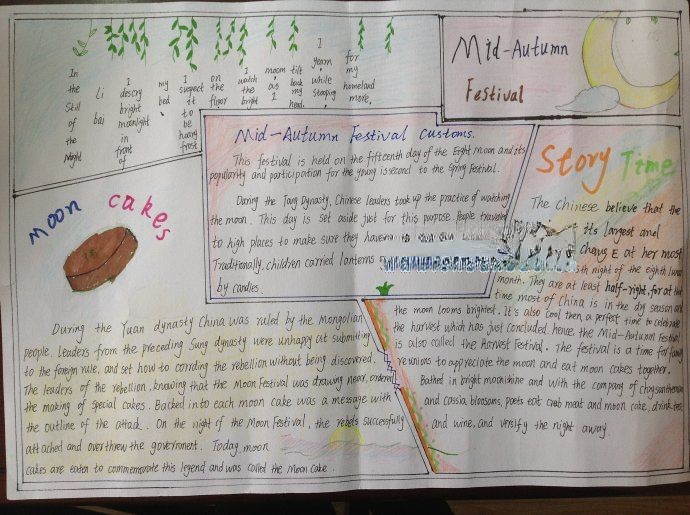 In the Still of the Night
Li bai
I descry bright moonlight in front of
my bed.
I suspect it to be hoary frost
on the floor.
I watch the bright
moon as I tilt back my head.
I yearn while stooping
for my homeland more.
Mid-Autumn
Festival
Moon cakes
Mid-Autumn Festival Customs.
This festival is held on the fifteenth day of the Eight Moon and its
popularity and participation for the young is second to the Spring Festival.
During the Tang Dynasty, Chinese leaders took up the practice of watching
the moon. This day is set aside just for this purpose. People traveled
to high places to make sure they have
Traditionally, children carried lanterns
by candles.
Story Time
The Chinese believe that the
its largest and
Chang E at her most
th night of the eighth lunar
month. They are at least half-right, for at that
time most of China is in the dry season and
the moon looms brightest. It's also cool then, a perfect time to celebrate
the harvest which has just concluded. hence the Mid-Autumn Festival
is also called the Harvest Festival. The festival is a time for family
reunions to appreciate the moon and eat moon cakes together.
Bathed in bright moonshine and with the company of chrysanthemum
and cassia blossoms, poets eat crab meat and moon cake, drink tea,
and wine, and versify the night away.
During the Yuan dynasty China was ruled by the Mongolian
people. Leaders from the preceding Sung dynasty were unhappy at submitting
to the foreign rule, and set how to corrding the rebellion without being discovered.
The leaders of the rebellion, knowing that the Moon Festival was drawing near, ordered
the making of special cakes. Backed into each moon cake was a message with
the outline of the attack. On the night of the Moon Festival, the rebels successfully
attached and overthrew the government. Today, moon
cakes are eaten to commemorate this legend and was called the Moon Cake.